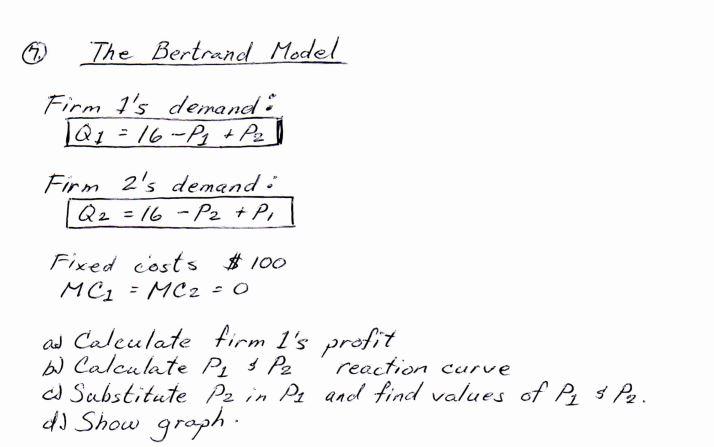 7. The Bertrand Model
Firm 1's demand:
Q1 = 16 - P1 + P2
Firm 2's demand:
Q2 = 16 - P2 + P1
Fixed costs $ 100
MC1 = MC2 = 0
a) Calculate firm 1's profit
b) Calculate P1 & P2 reaction curve
c) Substitute P2 in P1 and find values of P1 & P2.
d) Show graph.